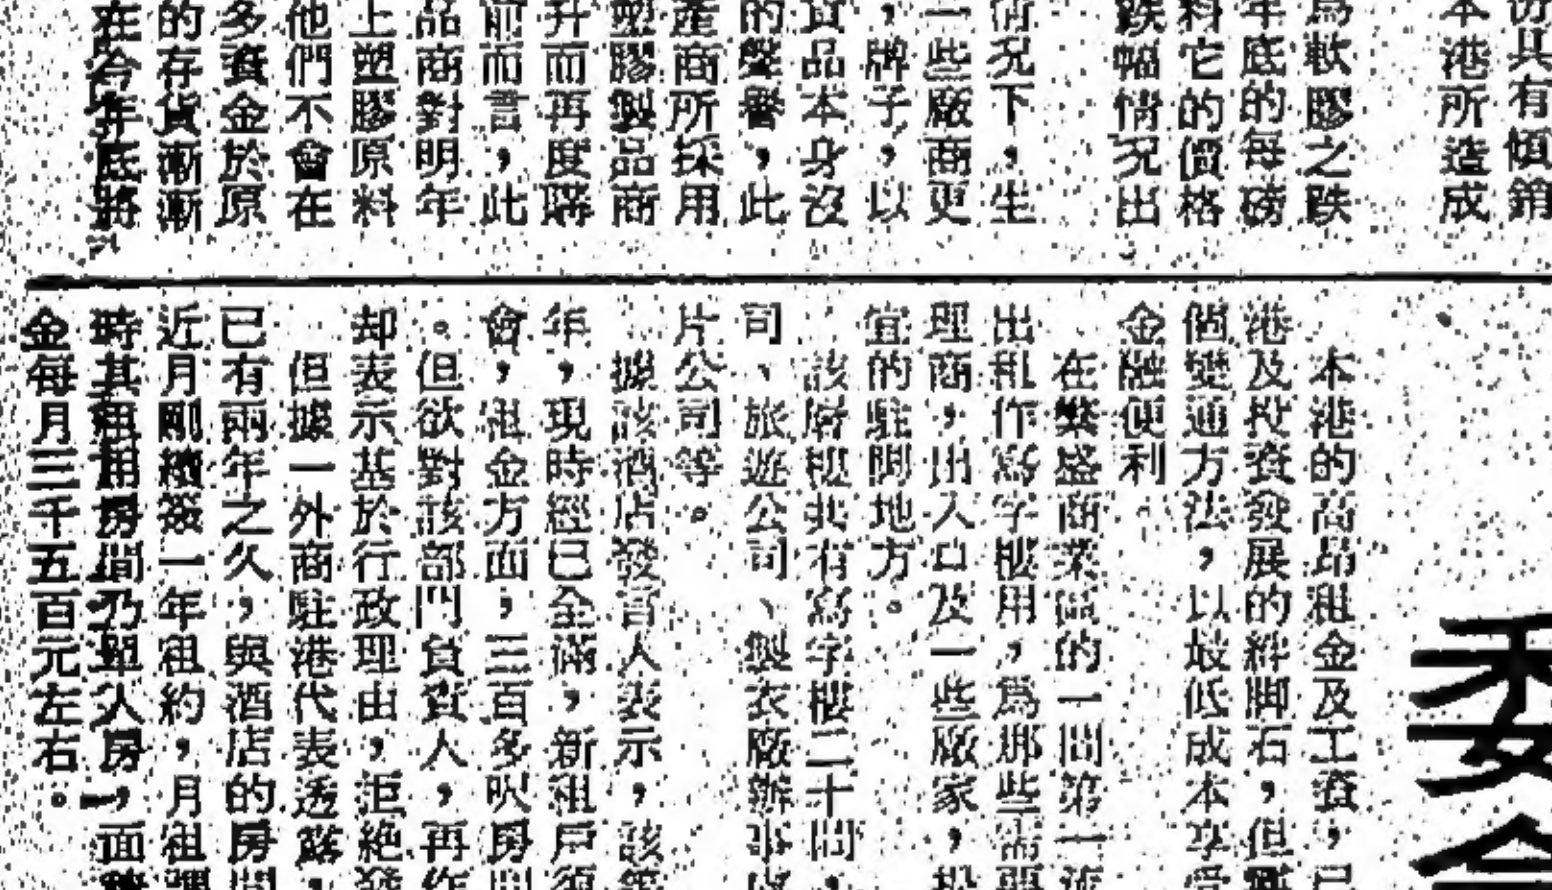 切具有傾銷
本港所造成
為軟膠之跌
年底的每磅
料它的價格
跌幅情況出
情況下，生
一些廠商更
，牌子，以
其品本身沒
的聲譽，此
產商所採用
塑膠製品商
升而再度購
前而言，此
品商對明年
上塑膠原料
他們不會在
多資金於原
的存貨漸漸
在今年底將
委會
本港的高昂租金及工資，已
港及投資發展的絆脚石，但
個變通方法，以最低成本享受
金融便利
在繁盛商業區的一間第一流
出租作寫字樓用，為那些需要
理商，出入口及一些廠家，
宜的駐脚地方。
該層樓共有寫字樓二十間，
司、旅遊公司、製衣廠辦事
片公司等。
據該酒店發言人表示，該
年，現時經已全滿，新租戶須
會，租金方面，三百多呎房間
。但欲對該部門負責人，再作
却表示基於行政理由，拒絕發
但據一外商駐港代表透露，
已有兩年之久，與酒店的房間
近月剛續簽一年租約，月租
時其租用房間乃單人房，面積
金每月三千五百元左右。